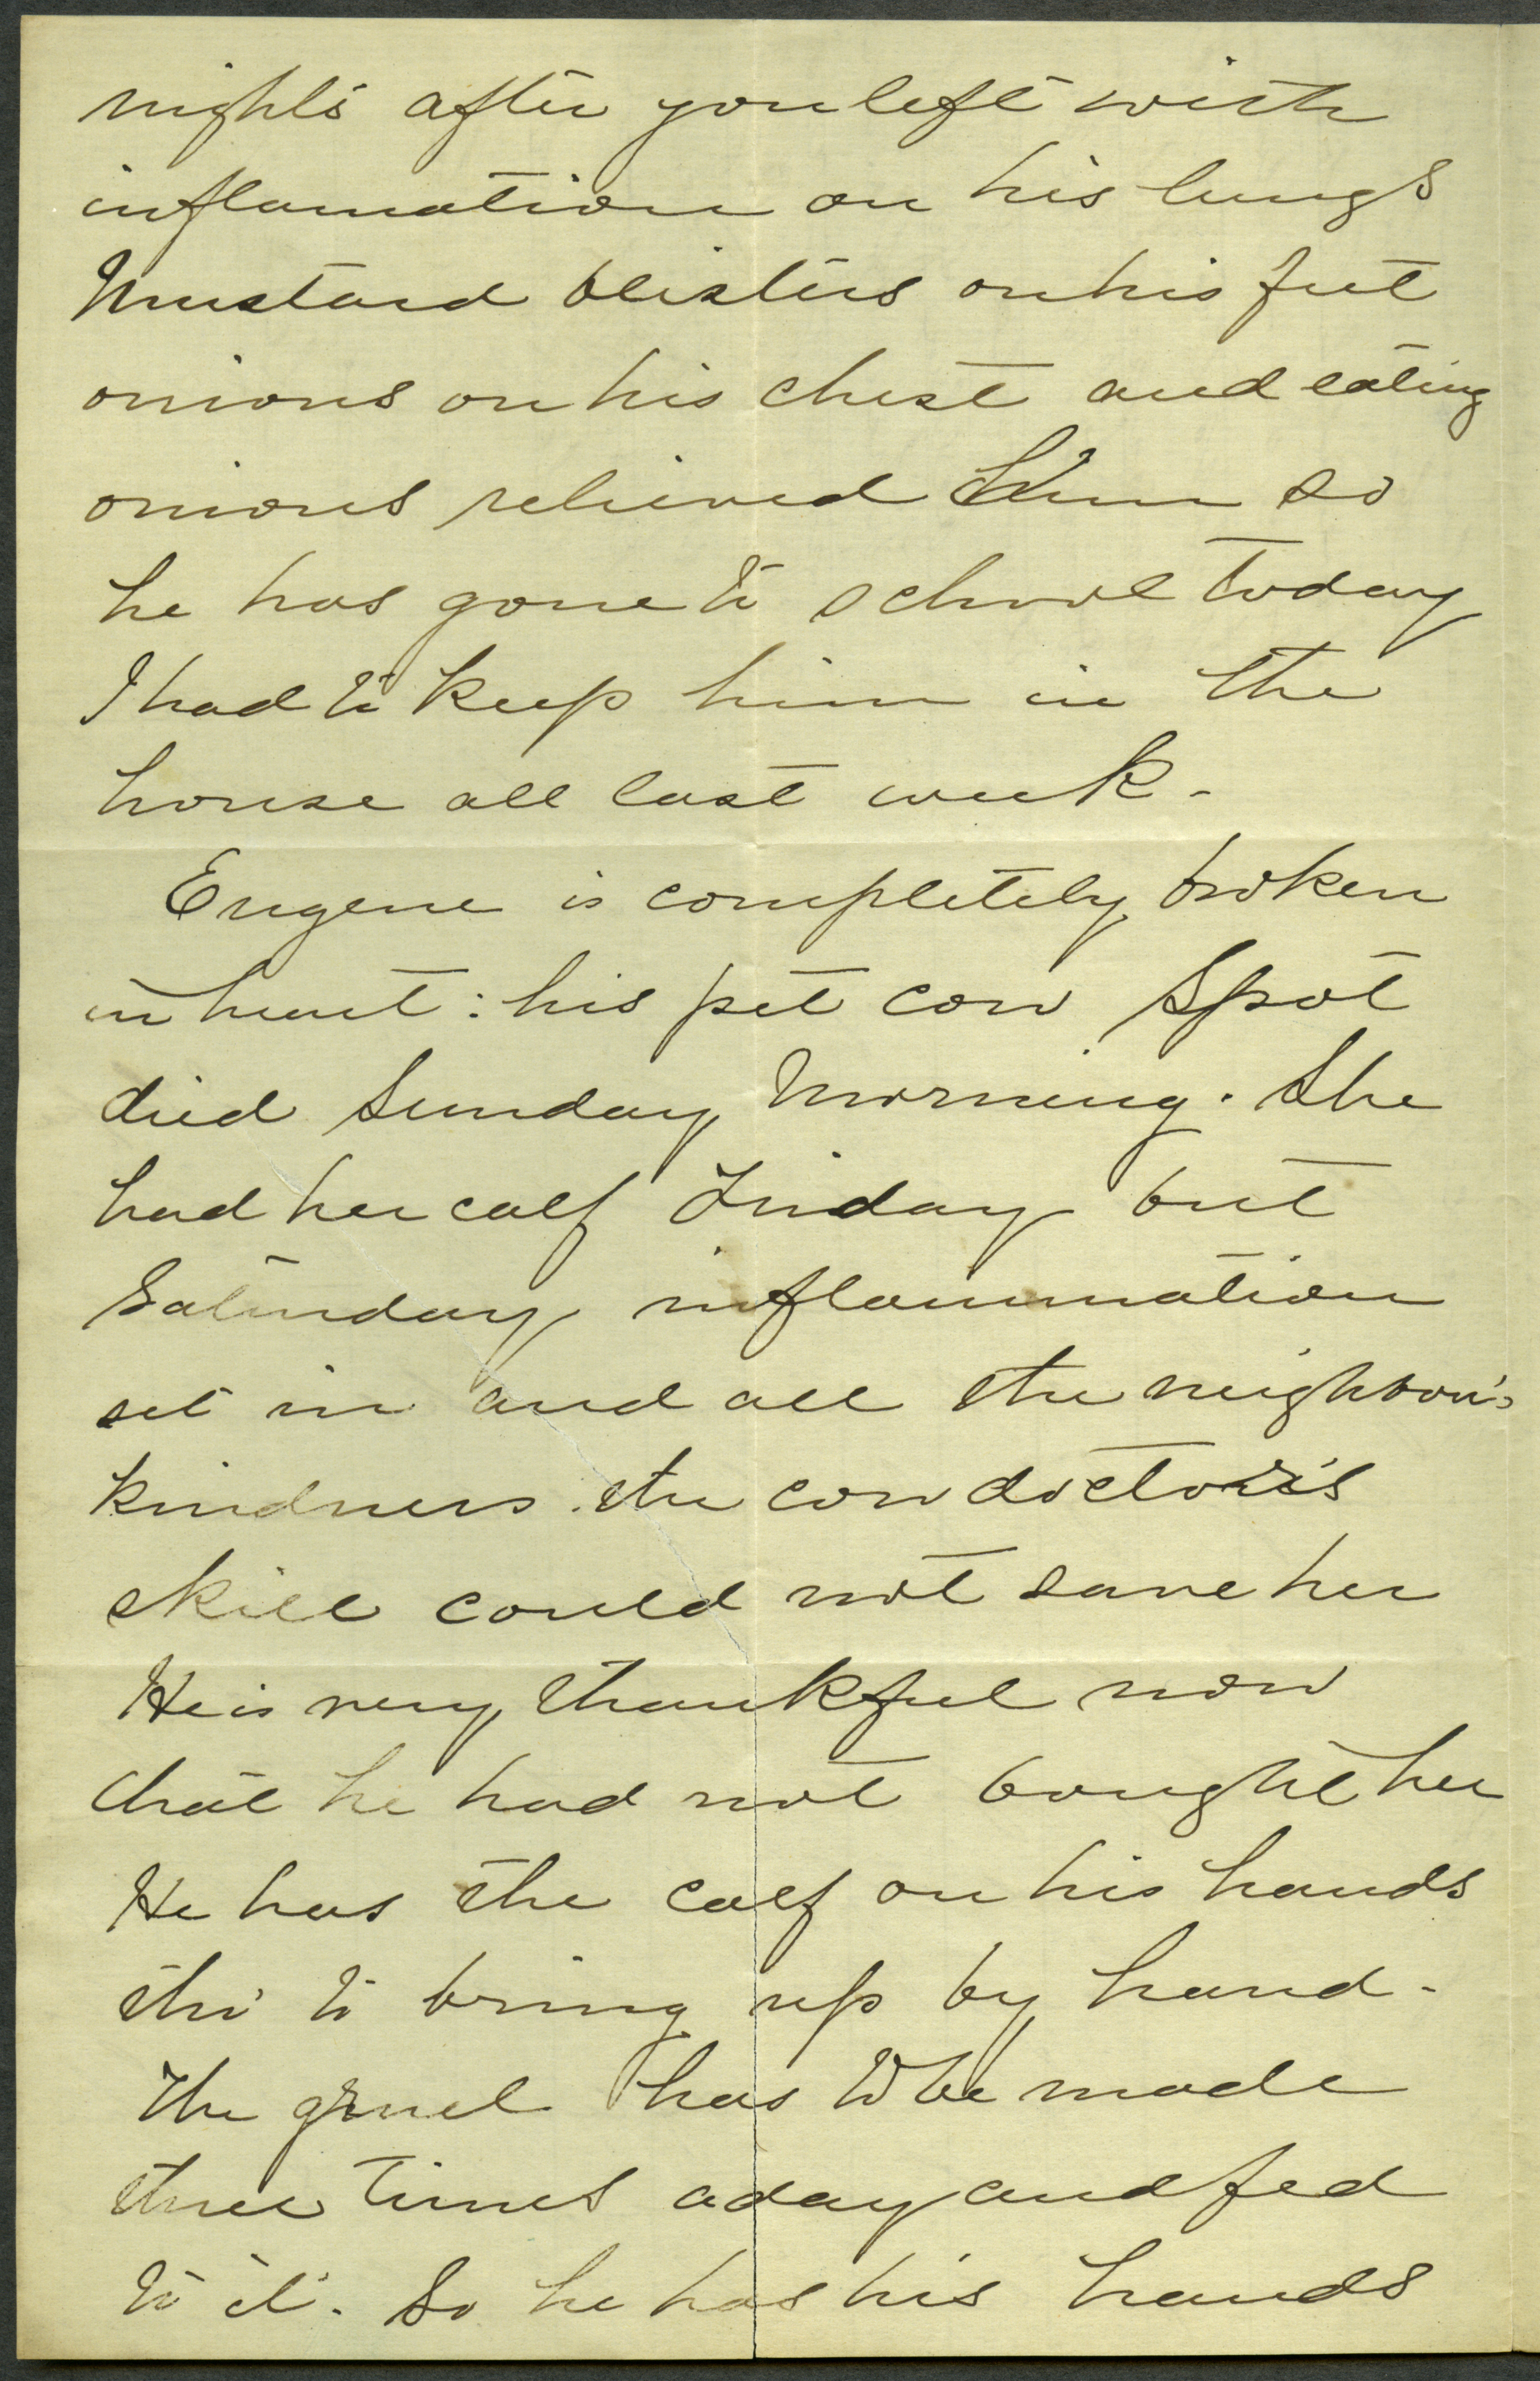 nights after you left with
inflamation on his lungs
Mustard blisters on his feet
onions on his chest and eating
onions relieved him so
he has gone to school today
I had to keep him in the
house all last week -
Eugene is completely broken
in heart : his pet cow Spot
died Sunday Morning. She
had her calf Friday but
Saturday inflammation
set in and all the neighbor's
kindness . the cow doctor's
skill could not save her
He is very thankful now
that he had not bought her
He has the calf on his hands
tho' to bring up by hand -
The gruel has to be made
three times a day and fed
to it. So he has his hands